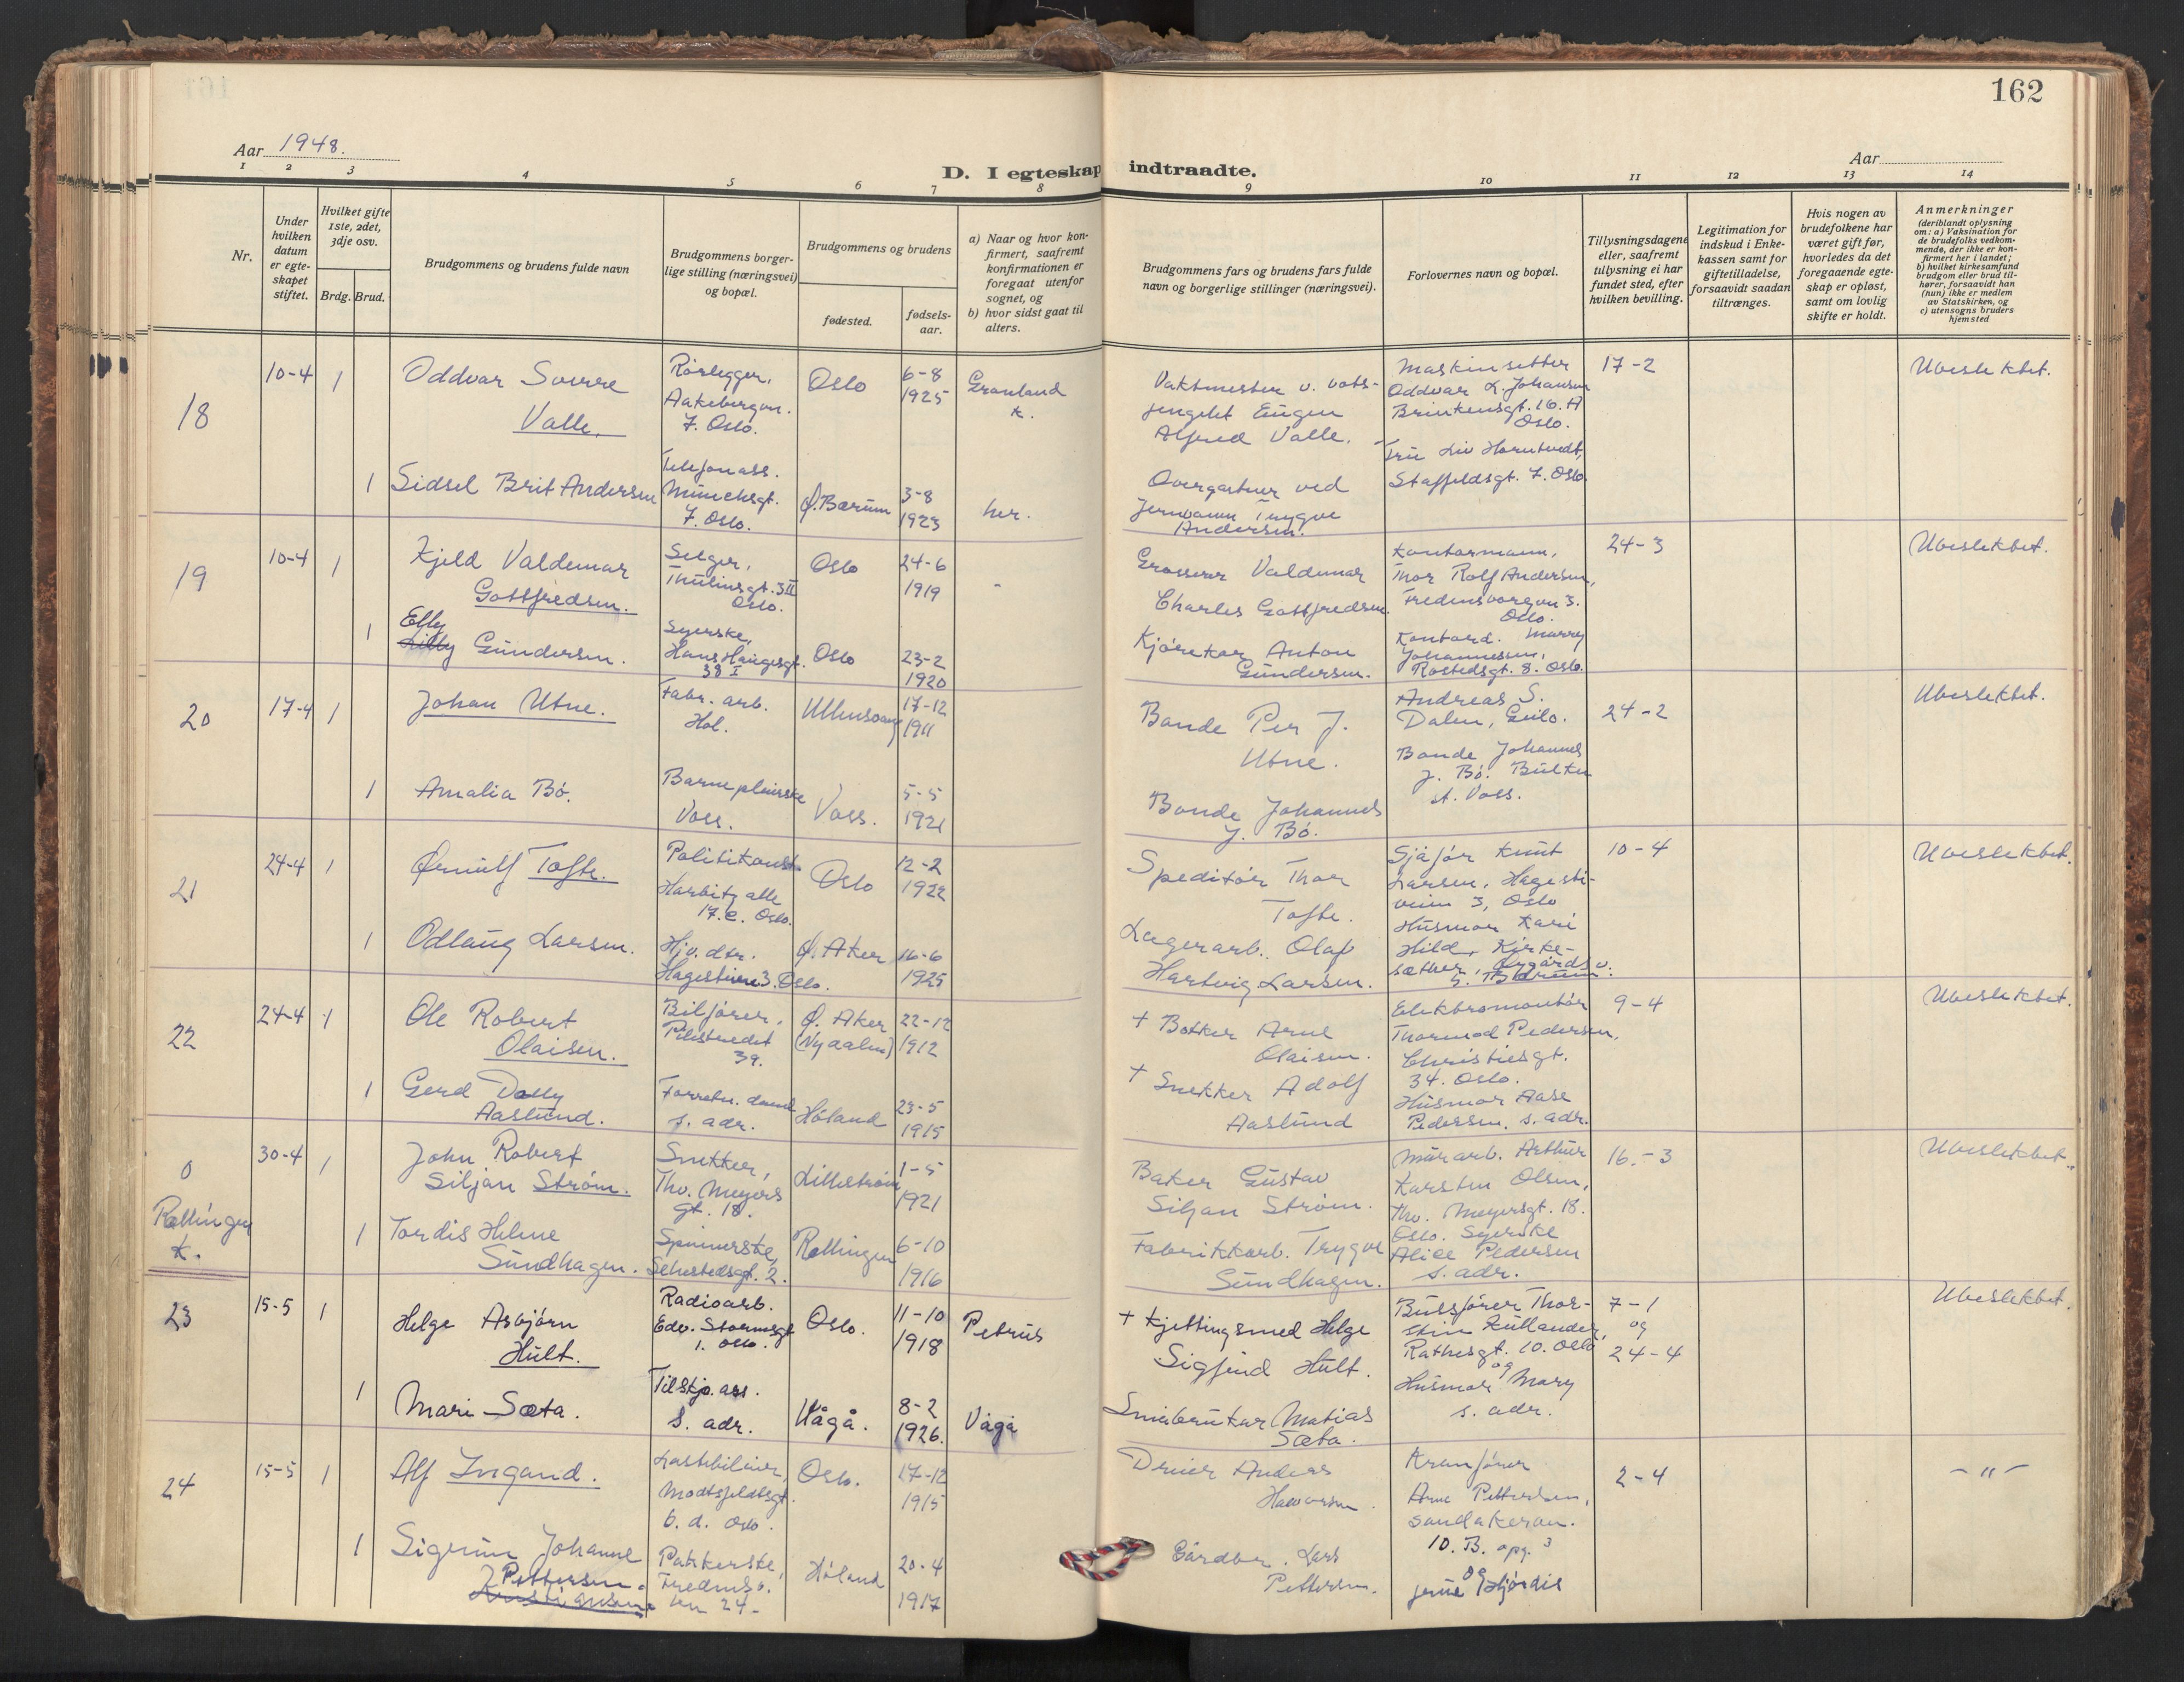 162
Aar 1948.
Aar
D. I egteskap indtraadte.
1 2 3 4 5 6 7 8 9 10 11 12 13 14
Nr.
Under hvilken datum er egte-skapet stiftet.
Hvilket gifte 1ste, 2det, 3dje osv.
Brdg. Brud.
Brudgommens og brudens fulde navn
Brudgommens borger-lige stilling (næringsvei) og bopæl.
Brudgommens og brudens
fødested.
fødsels-aar.
a) Naar og hvor kon-firmert, saafremt konfirmationen er foregaat utenfor sognet, og
b) hvor sidst gaat til alters.
Brudgommens fars og brudens fars fulde navn og borgerlige stillinger (næringsvei).
Forlovernes navn og bopæl.
Tillysningsdagene eller, saafremt tillysning ei har fundet sted, efter hvilken bevilling.
Legitimation for indskud i Enke-kassen samt for giftetilladelse, forsaavidt saadan tiltrænges.
Hvis nogen av brudefolkene har været gift før, hvorledes da det foregaaende egte-skap er opløst, samt om lovlig skifte er holdt.
Anmerkninger
(deriblandt oplysning om: a) Vaksination for de brudefolks vedkom-mende, der ikke er kon-firmert her i landet; b) hvilket kirkesamfund brudgom eller brud til-hører, forsaavidt han (hun) ikke er medlem av Statskirken, og c) utensogns bruders hjemsted
18
10-4 1
Oddvar Sverre
Valle.
Rørlegger,
Aakebergvn.
7. Oslo.
Oslo
6-8
1925
Grønland
k.
Vaktmester v. bots-
fengslet Eugen
Alfred Valle.
Maskinsetter
Oddvar L. Johansen
Brinkensgt. 16. A
Oslo.
17-2
Ubeslektet.
1 Sidsel Brit Andersen
Telefonass.
Munchsgt.
7. Oslo.
Ø. Bærum
3-8
1923
her.
Overgartner ved
Jernbanen Trygve
Andersen.
Fru Liv Horntvedt,
Staffeldsgt. 7. Oslo.
19
10-4 1
Kjeld Valdemar
Gottfredsen.
Selger,
Thulinsgt. 3 II
Oslo.
Oslo
24-6
1919
"
Grosserer Valdemar
Charles Gottfredsen.
Kontormann,
Thor Rolf Andersen,
Fredensborgvn 3.
Oslo.
24-3
Ubeslektet.
Elly
1 Lilly Gundersen.
Syerske,
Hans Haugesgt.
38 I
Oslo
23-2
1920
Kjørekar Anton
Gundersen.
Kontord. Marry
Johannessen,
Rostedsgt. 8. Oslo.
20
17-4 1
Johan Utne.
Fabr. arb.
Hol.
Ullensvang
17-12
1911
Bonde Per J.
Utne.
Andreas S.
Dalen, Geilo.
24-2
Ubeslektet.
1 Amalia Bø.
Barnepleierske
Voss.
Voss.
5-5
1921
Bonde Johannes
J. Bø.
Bonde Johannes
J. Bø. Bulken
st. Voss.
21
24-4 1
Ørnulf Tofte.
Politikonst.
Harbitz alle
17. e. Oslo.
Oslo
12-2
1922
Speditør Thor
Tofte.
Sjåfør Knut
Larsen, Hagesti-
veien 3, Oslo
10-4
Ubeslektet.
1 Odlaug Larsen.
Hjv. dtr.
Hagestivn 3. Oslo.
Ø. Aker
16-6
1925
Lagerarb. Olaf
Hartvig Larsen.
Husmor Kari
Hild, Kirke-
sæther, Nygårdsv.
5. Bærum.
22
24-4 1
Ole Robert
Olaisen.
Biljører,
Pilestredet
39.
Ø. Aker
(Ny aalen)
22-12
1912
+ Bøtker Arne
Olaisen.
Elektromontør
Thormod Pedersen,
Christiesgt.
34. Oslo.
9-4
Ubeslektet.
1 Gerd Dolly
Aaslund.
Forretn. dame
s. adr.
Høland
23-5
1915
+ Snekker Adolf
Aaslund
Husmor Aase
Pedersen. s. adr.
0
Rællingen
k.
30-4 1
John Robert
Siljan Strøm.
Snekker,
Thv. Meyers
gt. 18.
Lillestrøm
1-5
1921
Baker Gustav
Siljan Strøm.
Murarb. Arthur
Karsten Olsen,
Thv. Meyersgt. 18.
Oslo. Syerske
Alice Pedersen
s. adr.
16.-3
Ubeslektet.
1 Tordis Helene
Sundhagen.
Spinnerske,
Sehestedsgt. 2.
Rællingen
6-10
1916
Fabrikkarb. Trygve
Sundhagen.
23
15-5 1
Helge Asbjørn
Hult.
Radioarb.
Edv. Stormsgt
1. Oslo.
Oslo.
11-10
1918
Petrus
+ Kjettingsmed Helge
Sigfried Hult.
Bussfører Thor-
stein Kullander,
Rathesgt. 10. Oslo
og
Husmor Mary
s. adr.
7-1
og
24-4
Ubeslektet.
1 Mari Sæta.
Tilskj. ass.
s. adr.
Vågå.
8-2
1926.
Vågå
Småbrukar Matias
Sæta.
24
15-5 1
Alf Ingand.
Lastebileier,
Modtsfeldtsgt.
6. d. Oslo.
Oslo.
17-12
1915
Dreier Anders
Halvorsen.
Kranfører
Arne Pettersen,
Sandakervn.
10. B. opg. 3
og
frue Hjørdis
2-4
- " -
1 Sigrunn Johanne
Pettersen.
Kristiansen
Pakkerske,
Fredensb.
vn 24.
Høland
20-4
1917
Gårdbr. Lars
Pettersen.